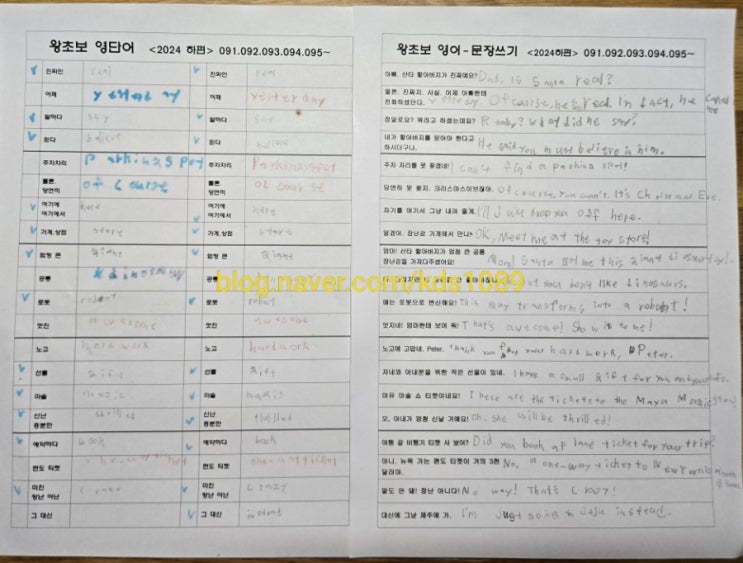 왕초보 영단어 <2024 하편> 091.092.093.094.095~
진짜인 real 진짜인 real
어제 yesterday 어제 yesterday
말하다 say 말하다 say
믿다 믿다
주차자리 Parking spot 주차자리 Parking spot
물론, 당연히 of course 물론, 당연히 of course
여기에 여기에서 here 여기에 여기에서 here
가게,상점 store 가게,상점 store
엄청 큰 giant 엄청 큰 giant
공룡 공룡
로봇 robot 로봇 robot
멋진 멋진
노고 hard work 노고 hard work
선물 gift 선물 gift
마술 magic 마술
신난 흥분한 신난 흥분한 thrilled
예약하다 book 예약하다 book
편도 티켓 편도 티켓 one-way ticket
미친 장난 아닌 crazy 미친 장난 아닌 crazy
그 대신 그 대신 instead
왕초보 영어-문장쓰기 <2024하편> 091.092.093.094.095~
아빠, 산타 할아버지가 진짜예요? Dad, is Santa real?
물론, 진짜지. 사실, 어제 아빠한테 전화하셨단다. yesterday. Of course, he is real. In fact, he called me
정말로요? 뭐라고 하셨는데요? Really? What did he say?
네가 할아버지를 믿어야 한다고 하시더구나. He said you must believe in him.
주차 자리를 못 찾겠네! I can't find a parking spot!
당연히 못 찾지. 크리스마스이브잖아. Of course, you can't. It's Christmas Eve.
자기를 여기서 그냥 내려 줄게. I'll just drop you off here.
알겠어. 장난감 가게에서 만나! OK, Meet me at the toy store!
엄마! 산타 할아버지가 엄청 큰 공룡 장난감을 가져다주셨어요! Mom! Santa got me this giant
you don't like dinosaurs.
얘는 로봇으로 변신해요! This guy transforms into a robot!
멋지네! 엄마한테 보여 줘! That's awesome! Show it to me!
노고에 고맙네, Peter. Thank you for your hard work, Peter.
자네와 아내분을 위한 작은 선물이 있네. I have a small gift for you and your
마유 마술 쇼 티켓이네! These are the tickets to the Mayu Magic show!
오, 아내가 엄청 신날 거예요! Oh, she will be thrilled!
여행 갈 비행기 티켓 사 놨어? Did you book a plane ticket for your trip?
아니. 뉴욕 가는 편도 티켓이 거의 3천 달러야. No, a one-way ticket to New York is
말도 안 돼! 장난 아니다! No way! That's crazy!
대신에 그냥 제주에 가. I'm just going to Jeju instead.
blog.naver.com/kds1089